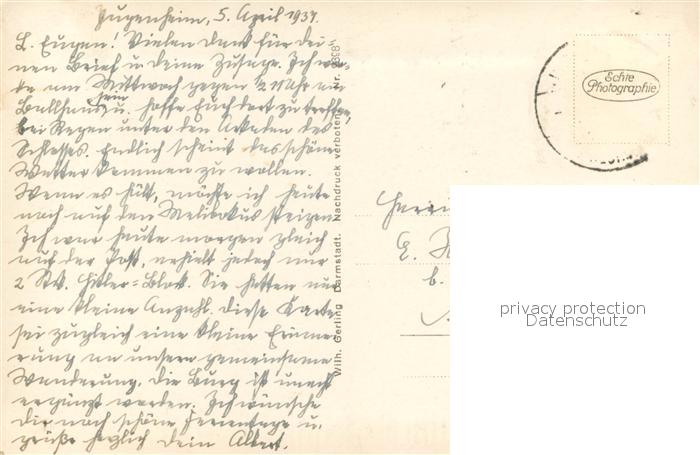 Jugenheim, 5. April 1937.
L. Eugen! Vielen Dank für dei-
nen Brief u. deine Zusage. Ich wer-
de am Mittwoch gegen ½11 Uhr am
Ballhaus sein u. hoffe Euch dort zu treffen,
bei Regen unter den Arkaden des
Schlosses. Endlich scheint das schöne
Wetter kommen zu wollen.
Wenn es hält, möchte ich heute
noch auf den Melibokus steigen.
Ich war heute morgen gleich
auf der Post, erhielt jedoch nur
2 Stk. Hitler-Block. Sie hatten nur
eine kleine Anzahl. Diese Karte
sei zugleich eine kleine Erinne-
rung an unsere gemeinsame
Wanderung. Die Burg ist unecht
ergänzt worden. Ich wünsche
dir noch schöne Ferientage u.
grüße herzlich Dein Albert.
Wilh. Gerling Darmstadt. Nachdruck verboten
Echte
Photographie
Herrn
E.
b.
privacy protection
Datenschutz